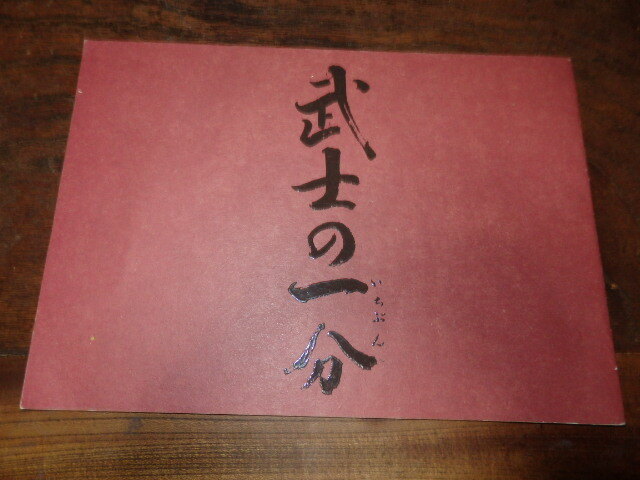 武士の一分
いちぶん